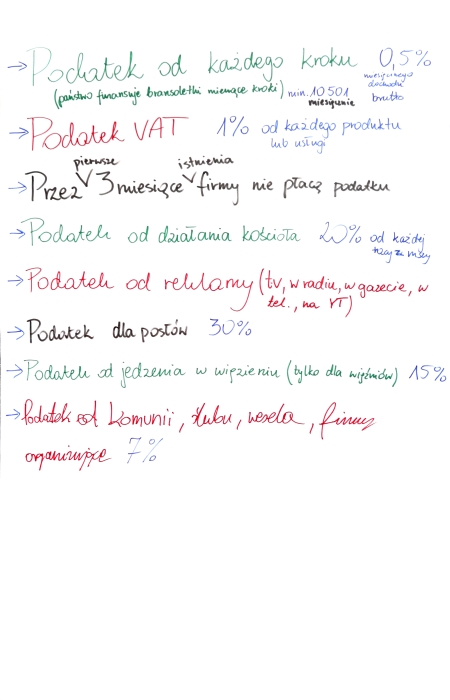 → Podatek od każdego kroku 0,5% miesięcznego dochodu brutto
(państwo finansuje bransoletki mierzące kroki) min. 10 501 miesięcznie
→ Podatek VAT 1% od każdego produktu
lub usługi
→ Przez pierwsze 3 miesiące istnienia firmy nie płacą podatku
→ Podatek od działania kościoła 20% od każdej
tacy za mszy
→ Podatek od reklamy (tv, w radiu, w gazecie, w
tel., na YT)
→ Podatek dla posłów 30%
→ Podatek od jedzenia w więzieniu (tylko dla więźniów) 15%
→ Podatek od komunii, ślubu, wesela, firmy
organizujące 7%